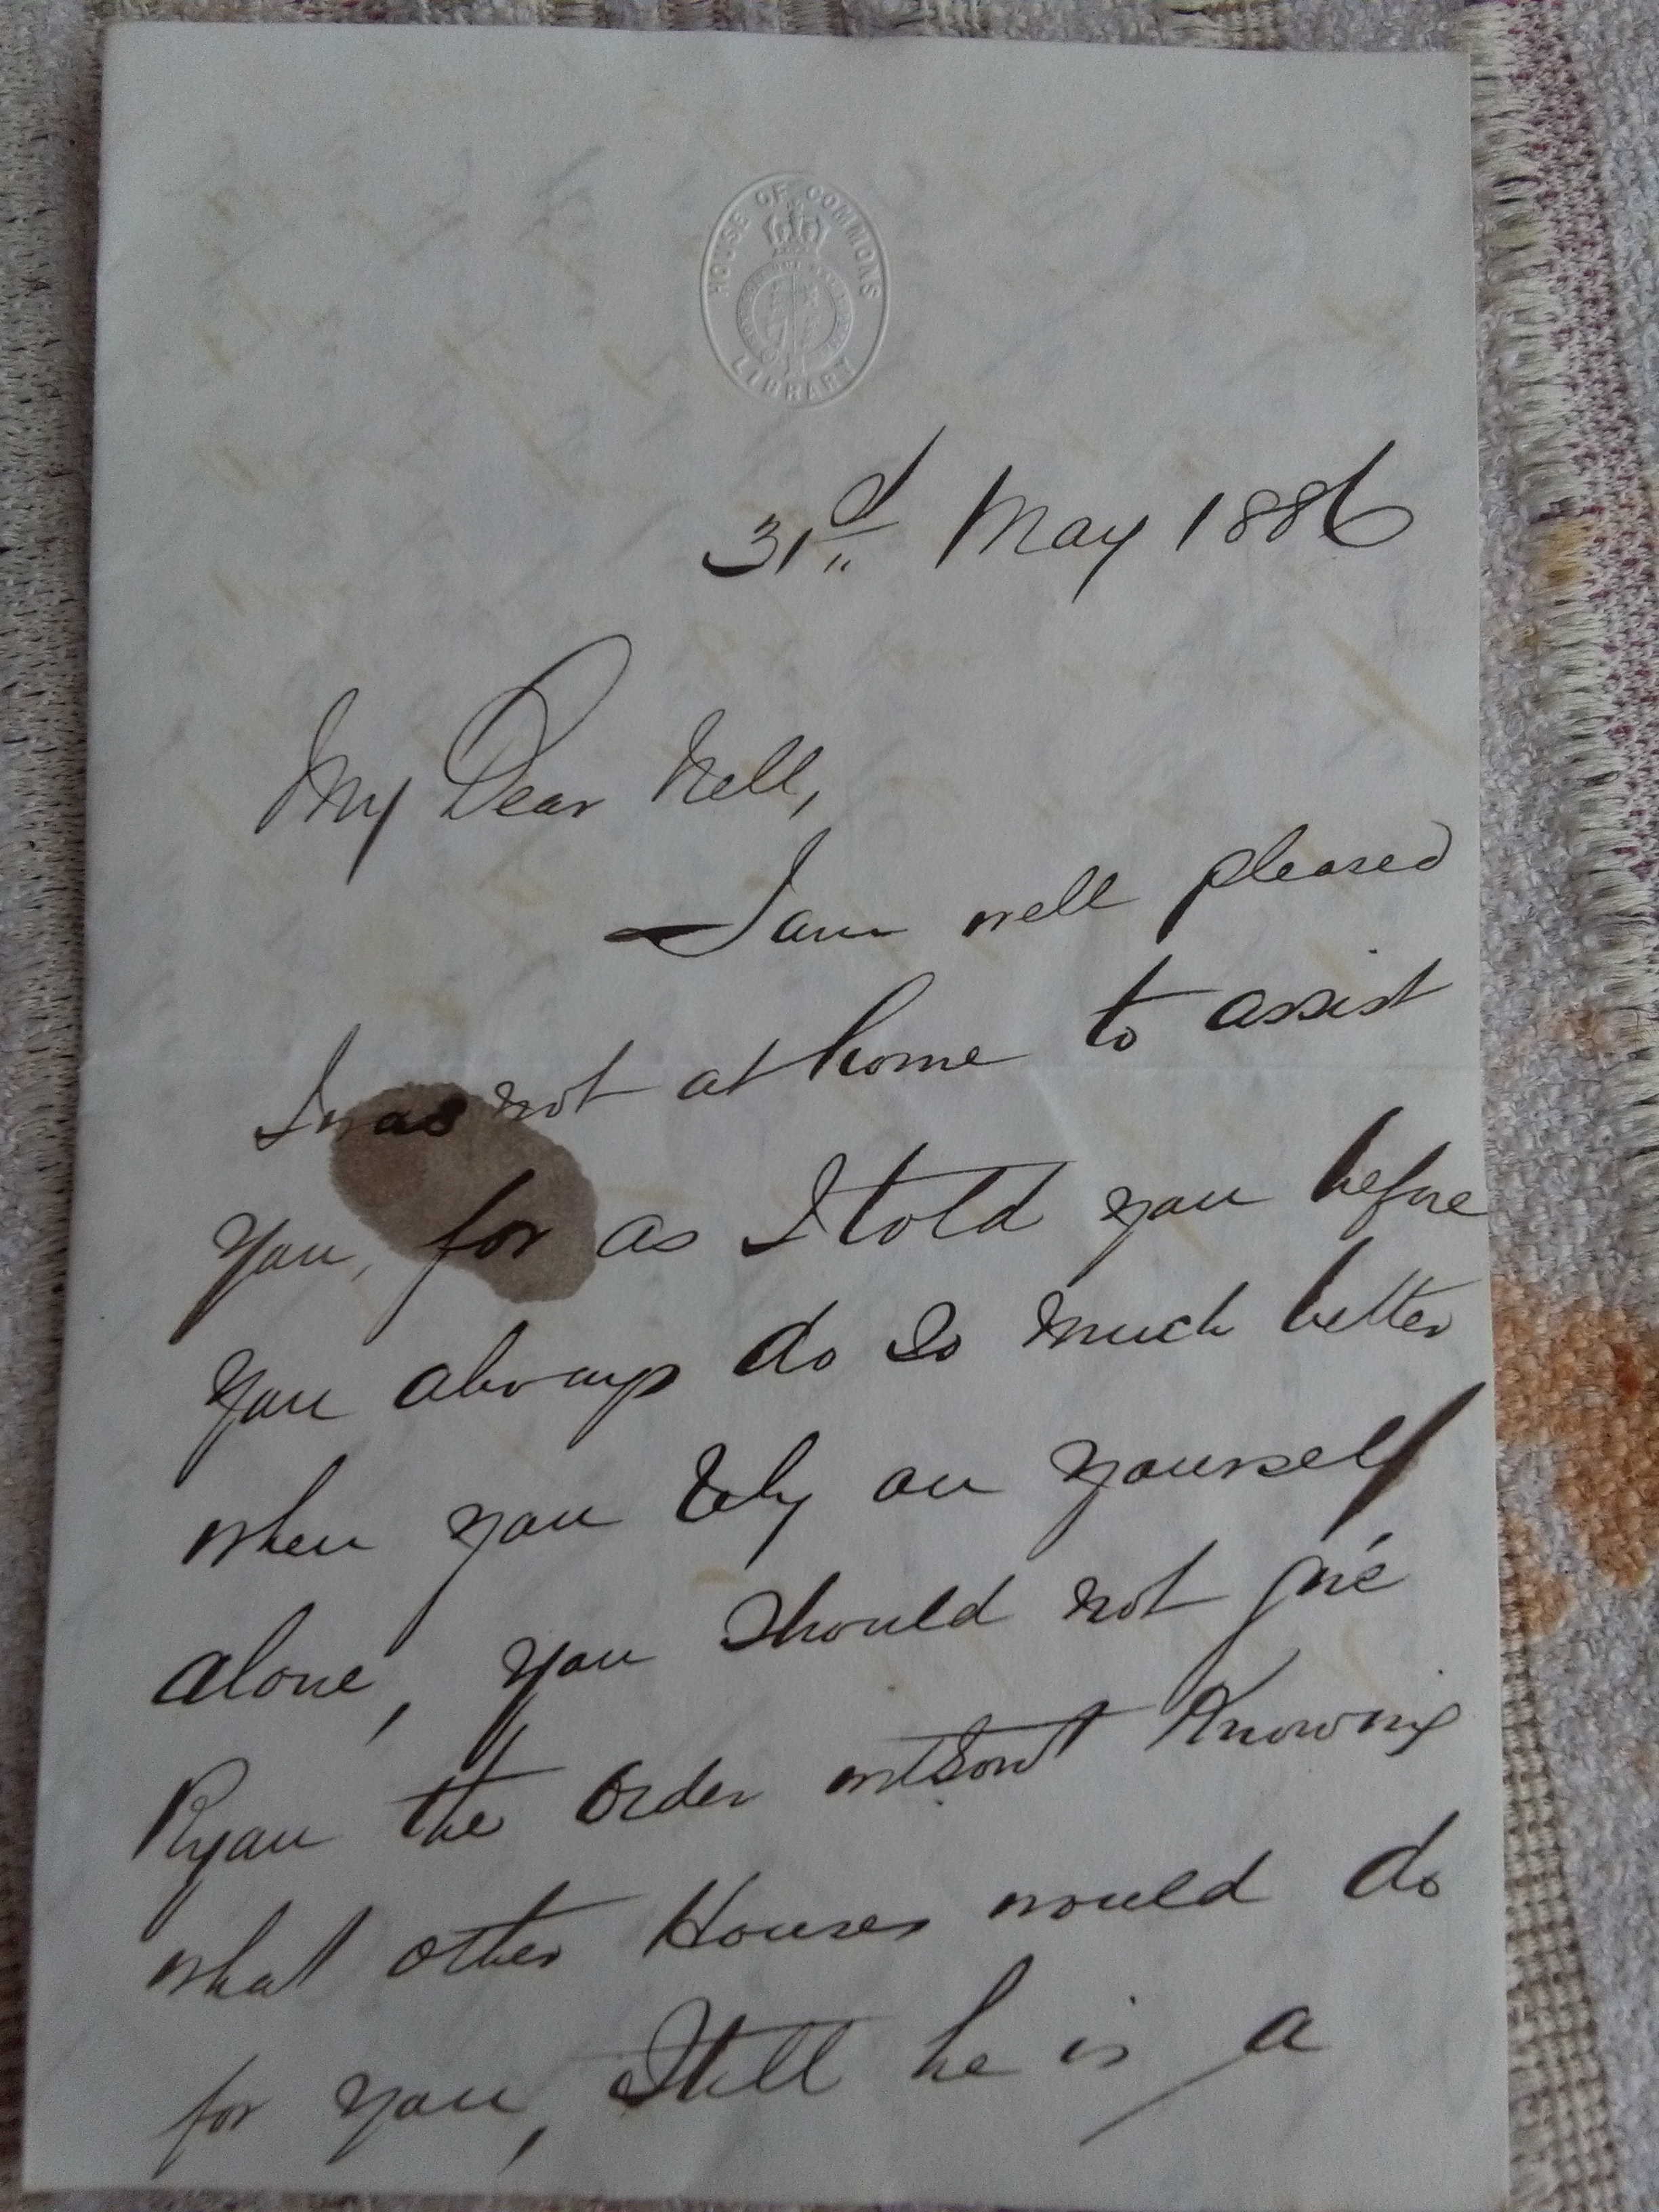 HOUSE OF COMMONS
LIBRARY
31d May 1886
My Dear Nell,
I am well pleased
I was not at home to assist
you, for as I told you before
you always do so much better
when you rely on yourself
alone, you should not give
Ryan the order without knowing
what other Houses would do
for you, Still he is a